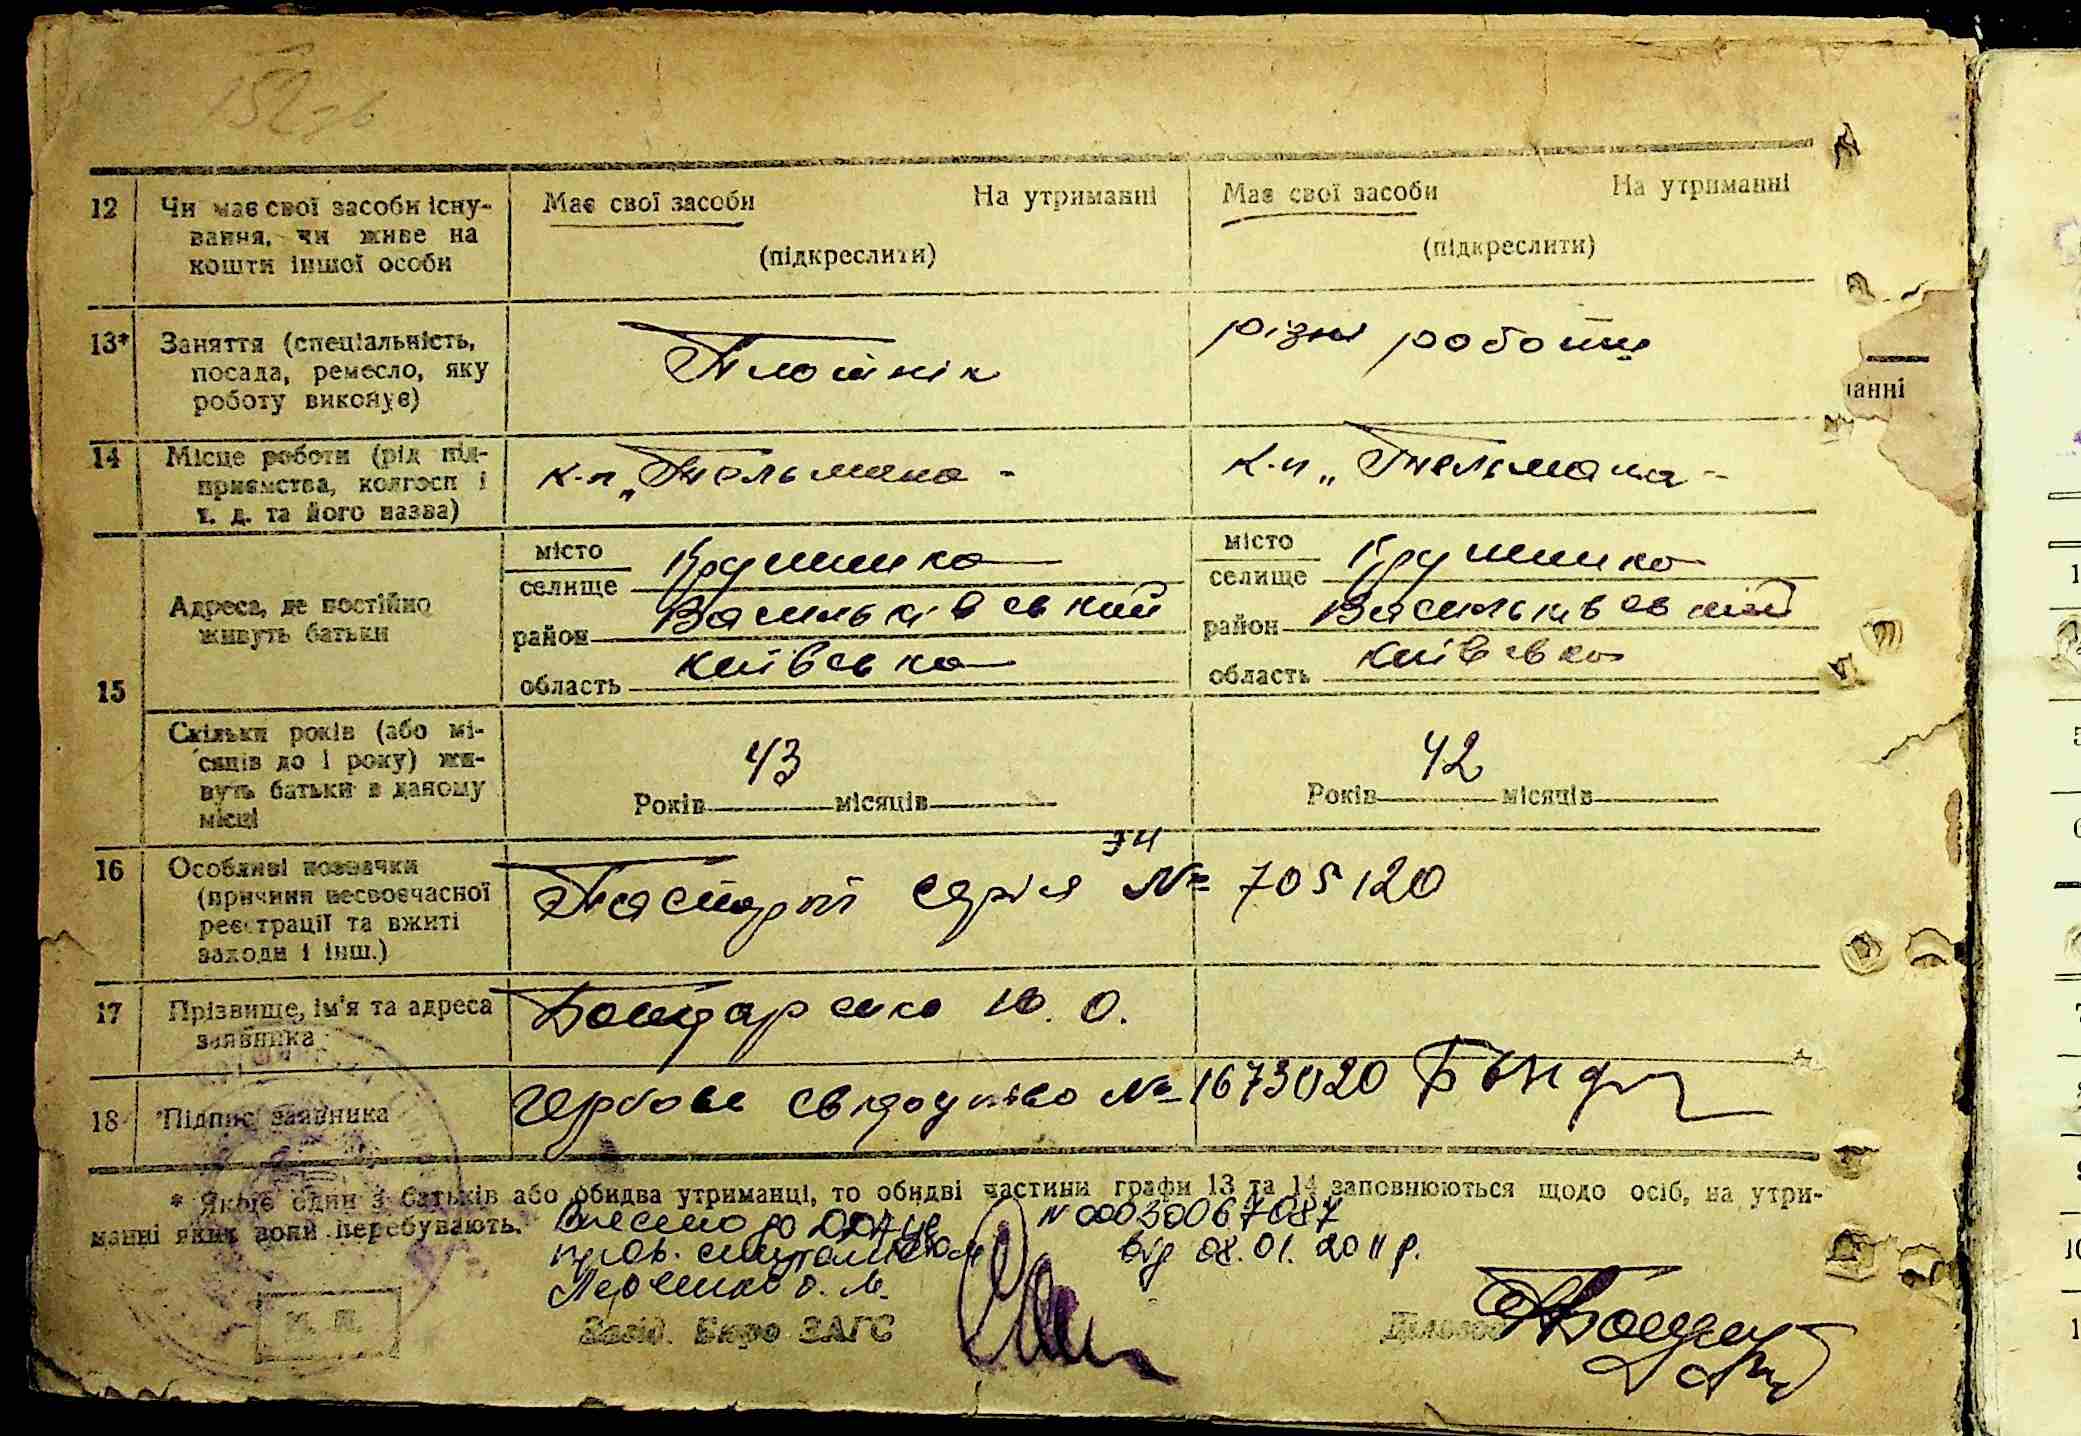 152зв
12 Чи має свої засоби існу- Має свої засоби На утриманні Має свої засоби На утриманні
вання, чи живе на
кошти іншої особи (підкреслити) (підкреслити)
13* Заняття (спеціальність, Плотнік різні роботи
посада, ремесло, яку
роботу виконує)
14 Місце роботи (рід під- к-п „Тельмана - к-п „Тельмана -
приємства, колгосп і
т. д. та його назва)
15 Адреса, де постійно живуть батьки
місто Крушинка місто Крушинка
селище селище
район Васильківський район Васильківський
область київська область київська
Скільки років (або мі- 43 42
сяців до 1 року) жи-
вуть батьки в даному Років місяців Років місяців
місці
16 Особливі позначки ЯЧ
(причини несвоєчасної Паспорт серія № 705120
реєстрації та вжиті
заходи і інш.)
17 Прізвище, ім'я та адреса Бондаренко О.
заявника
18 Підпис заявника Гербове свідоцтво № 1673020
* Якщо один з батьків або обидва утриманці, то обидві частини графи 13 та 14 заповнюються щодо осіб, на утри-
манні яких вони перебувають.
Внесено до N 00030067087
пров. спеціалістом від 08.01.2011 р.
О. М.
М. П. Завід. Бюро ЗАГС Діловод
анні